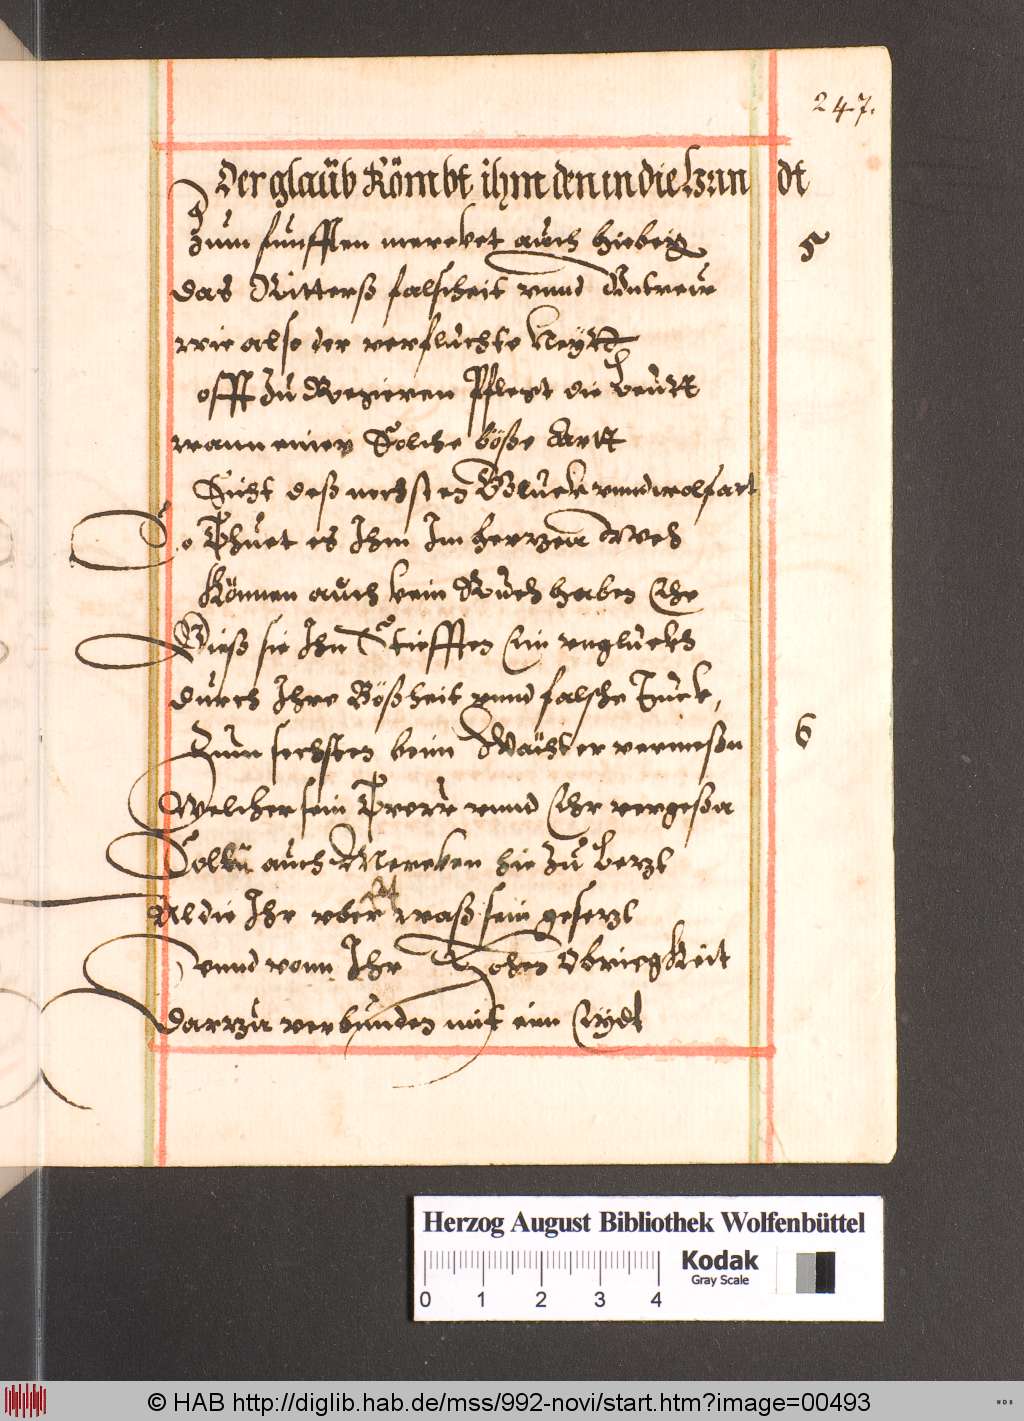 247.
Der glaüb Kömbt ihm den in die Handt
Zum fünfften mercket auch hiebeÿ
5
das Ritterß falscheit vnnd Vntreüw
wie also der verfluchte Neÿtt
offt zu Regieren Pflegt die Leutt
wann einer Solche böße Artt
Sicht deß nechsten Glück vnnd wolfart
So Thuet es Ihm Im hertzen Weh
Können auch kein Ruch haben Ehe
Bieß sie Ihn Stiefften Ein vnglückh
durch Ihre Bößheit vnnd falsche Tück,
Zum sechsten beim Wächter vermeßen
6
Welcher sein Treuw vnnd Ehr vergeßen
auch Mercken hie zu Letzt
Al die Ihr vber waß sein gesetzt
vnnd vonn Ihr Hohen ObriegKeit
Dartzu verbunden mit eim Eÿdt
Herzog August Bibliothek Wolfenbüttel
Kodak
Gray Scale
0 1 2 3 4
© HAB http://diglib.hab.de/mss/992-novi/start.htm?image=00493